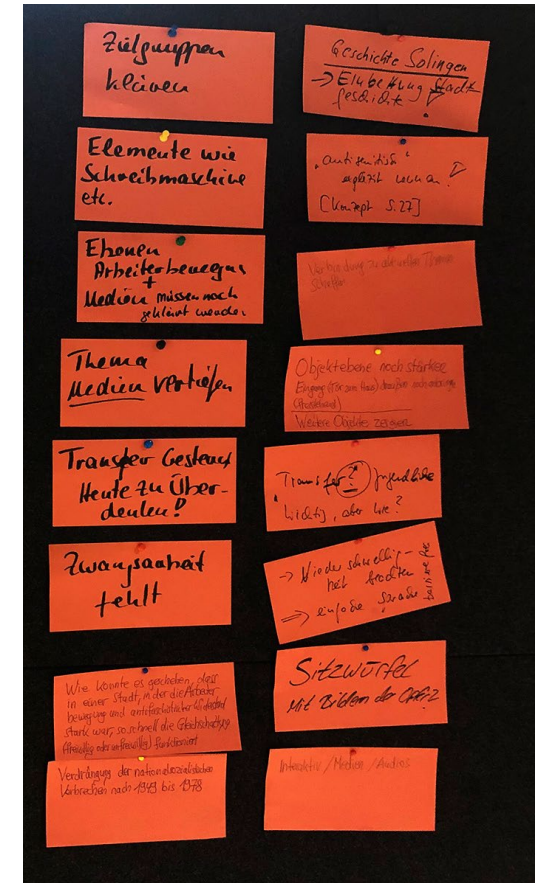 Zielgruppen
klären
Elemente wie
Schreibmaschine
etc.
Ebenen
Arbeiterbewegung
+
Medien müssen noch
geklärt werden
Thema
Medien vertiefen
Transfer Gestern/
Heute zu Über-
denken!
Zwangsarbeit
fehlt
Wie konnte es geschehen, dass
in einer Stadt, in der die Arbeiter-
bewegung und antifaschistischer Widerstand
stark war, so schnell die Gleichschaltung
(freiwillig oder unfreiwillig) funktioniert
Verdrängung der nationalsozialistischen
Verbrechen nach 1949 bis 1978
Geschichte Solingen
→ Einbettung Stadt-
geschichte
!
"antisemitisch"
explizit nennen!
[Konzept S. 27]
Verbindung zu aktuellen Themen
schaffen
Objektebene noch stärker
Eingang
Weitere Objekte zeigen
Transfer? Jugendliche
Wichtig, aber wie?
→ Niederschwellig-
keit beachten
⇒ einfache Sprache
Sitzwürfel
Mit Bildern der Opfer?
Interaktiv/Medien/Audios